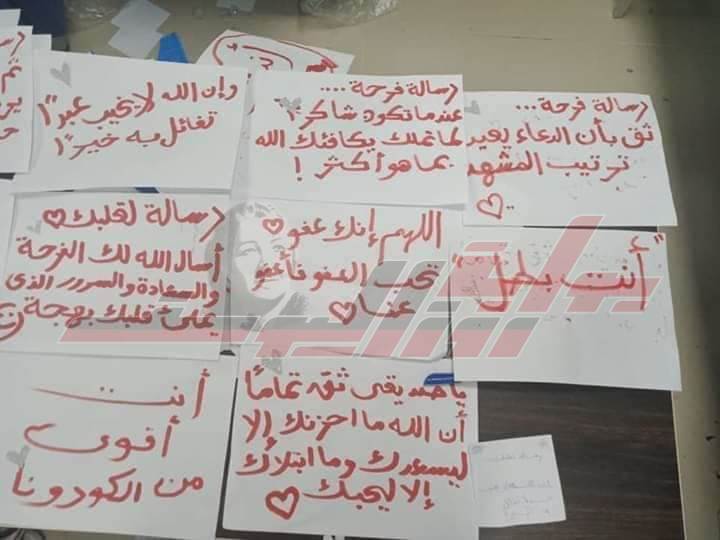 وإن الله لا يخيب عبدًا
تفائل به خيرًا
رسالة فرحة ....
عندما تكون شاكرًا
لما تملك يكافئك الله
بما هو أكثر !
رسالة فرحة ...
ثق بأن الدعاء يعيد
ترتيب المشهد
رسالة لقلبك
أسأل الله لك الفرحة
والسعادة والسرور الذى
يملئ قلبك بهجة
اللهم إنك عفو
تحب العفو فأعفو
عنا
"أنت بطل"
أنت
أقوى
من الكورونا
يا صديقى ثق تمامًا
أن الله ما احزنك إلا
ليسعدك وما ابتلاك
إلا ليحبك